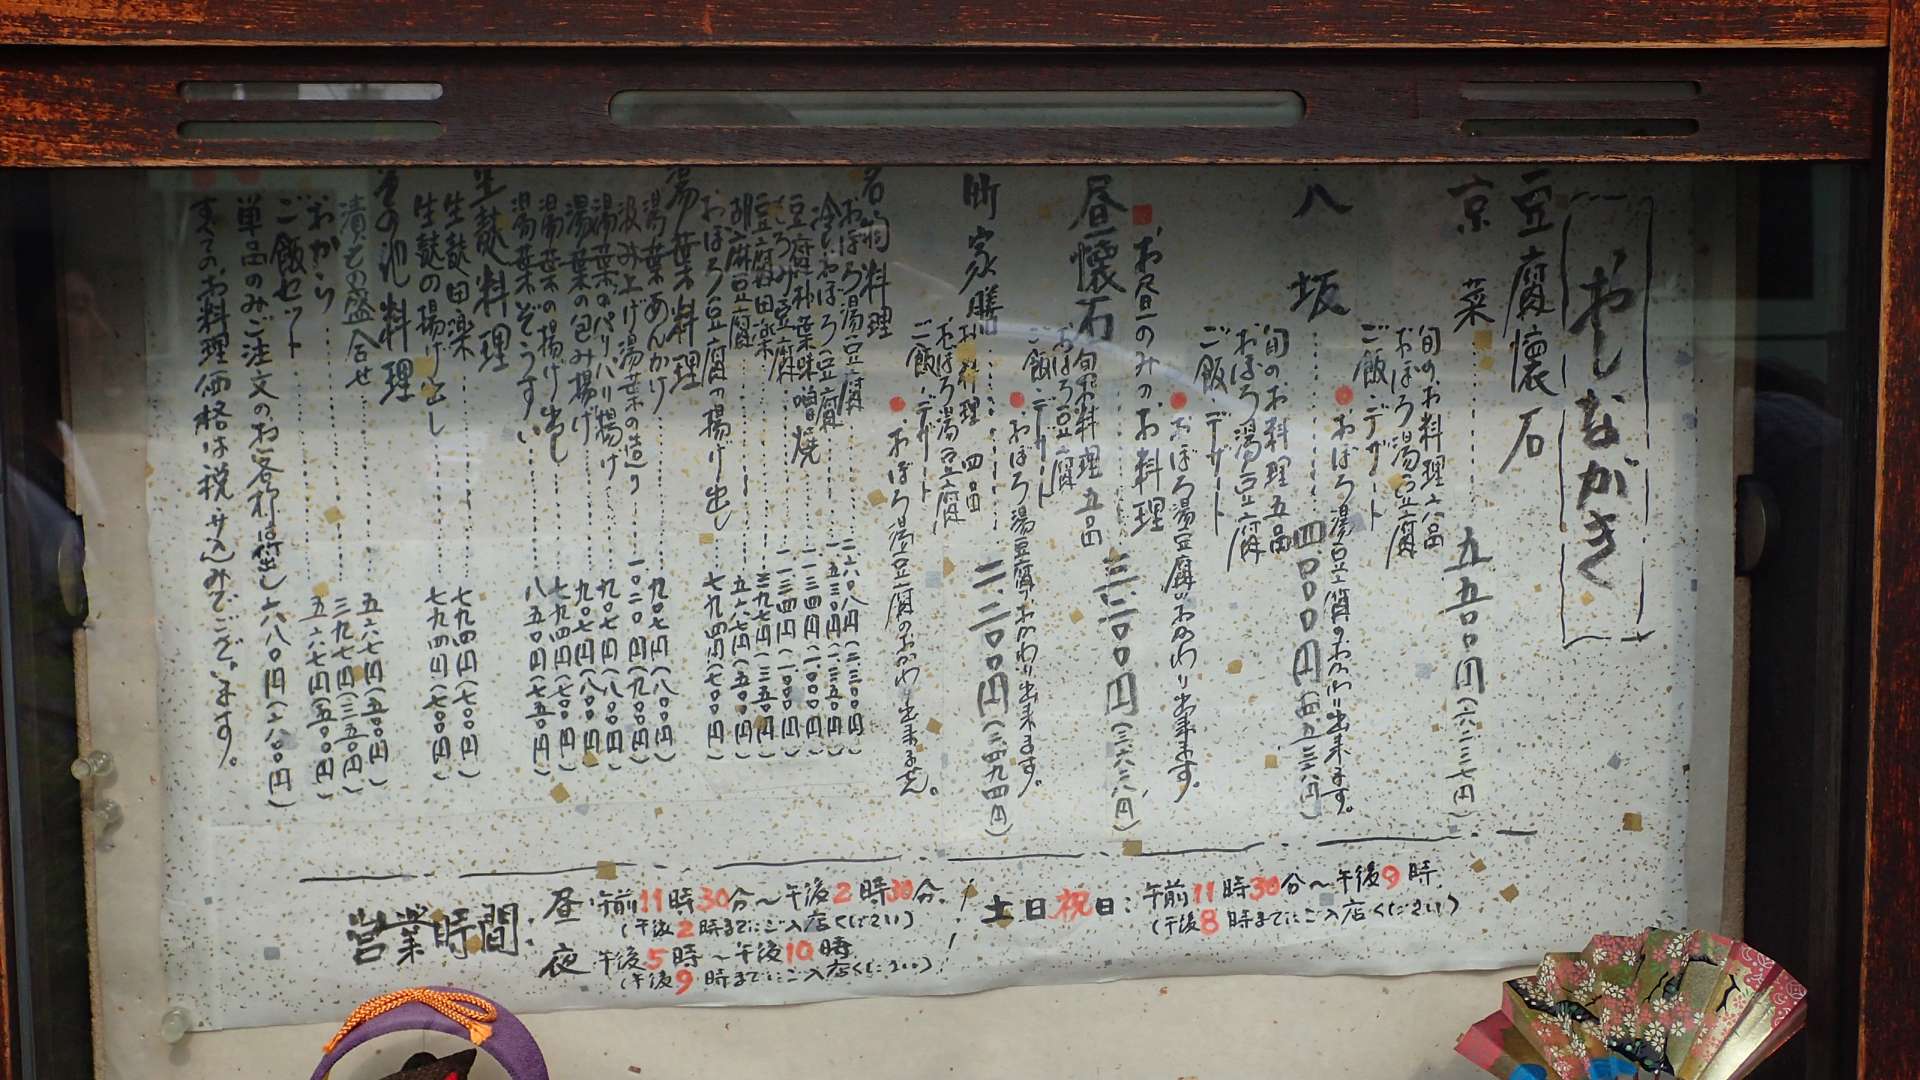 おしながき
豆腐懐石
京菜 五.五〇〇円(六.二三七円)
旬のお料理六品
おぼろ湯豆腐
ご飯・デザート
おぼろ湯豆腐のおかわり出来ます。
八坂 四.〇〇〇円(四.五三六円)
旬のお料理五品
おぼろ湯豆腐
ご飯・デザート
おぼろ湯豆腐のおかわり出来ます。
お昼のみのお料理
昼懐石 三.二〇〇円
旬のお料理五品
おぼろ湯豆腐
ご飯・デザート
おぼろ湯豆腐のおかわり出来ます。
町家膳 二.二〇〇円(二.四九四円)
お料理四品
おぼろ湯豆腐
ご飯・デザート
おぼろ湯豆腐のおかわり出来ません。
名物料理
おぼろ湯豆腐 二.六〇八円(二.三〇〇円)
冷しおぼろ豆腐 一.五三〇円(一.三五〇円)
豆腐朴葉味噌焼 一.一三四円(一.〇〇〇円)
とろみ豆腐 一.一三四円(一.〇〇〇円)
豆腐田楽 三九七円(三五〇円)
胡麻豆腐 五六七円(五〇〇円)
おぼろ豆腐の揚げ出し 七九四円(七〇〇円)
湯葉料理
湯葉あんかけ 九〇七円(八〇〇円)
汲み上げ湯葉の造り 一.〇二〇円(九〇〇円)
湯葉のパリパリ揚げ 九〇七円(八〇〇円)
湯葉の包み揚げ 九〇七円(八〇〇円)
湯葉の揚げ出し 七九四円(七〇〇円)
湯葉ぞうすい 八五〇円(七五〇円)
生麩料理
生麩田楽 七九四円(七〇〇円)
生麩の揚げ出し 七九四円(七〇〇円)
その他料理
漬もの盛合せ 五六七円(五〇〇円)
おから 三九七円(三五〇円)
ご飯セット 五六七円(五〇〇円)
単品のみご注文のお客様は
すべてのお料理価格は税サ込みでございます。
営業時間:
昼:午前11時30分~午後2時30分
(午後2時までにご入店ください)
夜 午後5時~午後10時
(午後9時までにご入店ください)
土日祝日:午前11時30分~午後9時
(午後8時までにご入店ください)